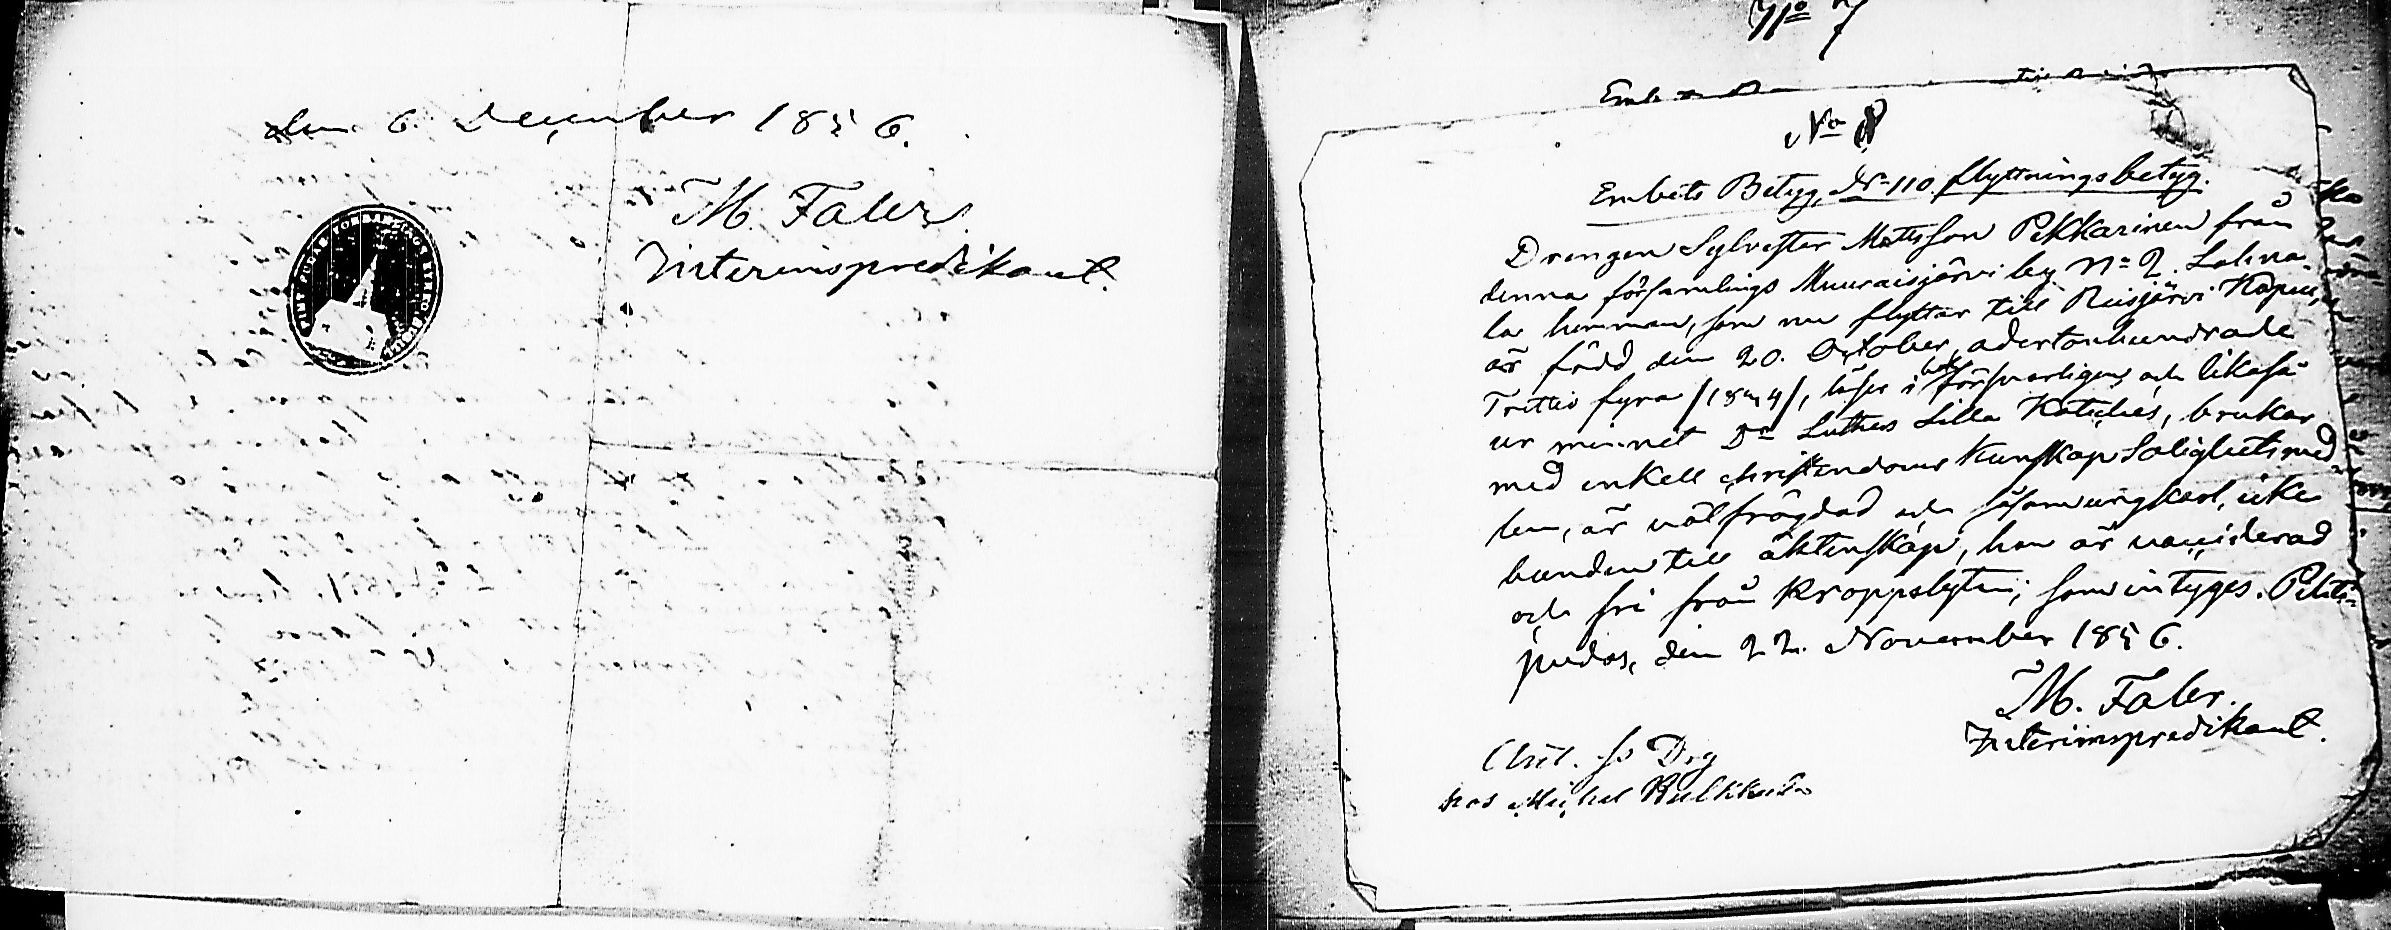 den 6 December 1856.
M. Faler
Interimspredikant.
No 7
No 8
Embets Betyg, No 110. flyttningsbetyg.
Drengen Sylvester Mattsson Pikkarinen från
denna församlings Muuraisjärvi by No 2. Lahna-
la hemman, som nu flyttar till Reisjärvi Kapell,
är född den 20. October adertonhundrade
Trettio fyra /1834/, läser i bok försvarligen och likaså
ur minnet Dr Luthers Lilla Kateches, brukar
med enkell christendoms Kunskap Salighetsmed-
len, är välfrägdad och såsom ungkarl, icke
bunden till äktenskap, han är vaccinerad
och fri från Kroppslyten; som intyges. Pihti-
pudas, den 22. November 1856.
M. Faler.
Interimspredikant.
Drg
hos Michel